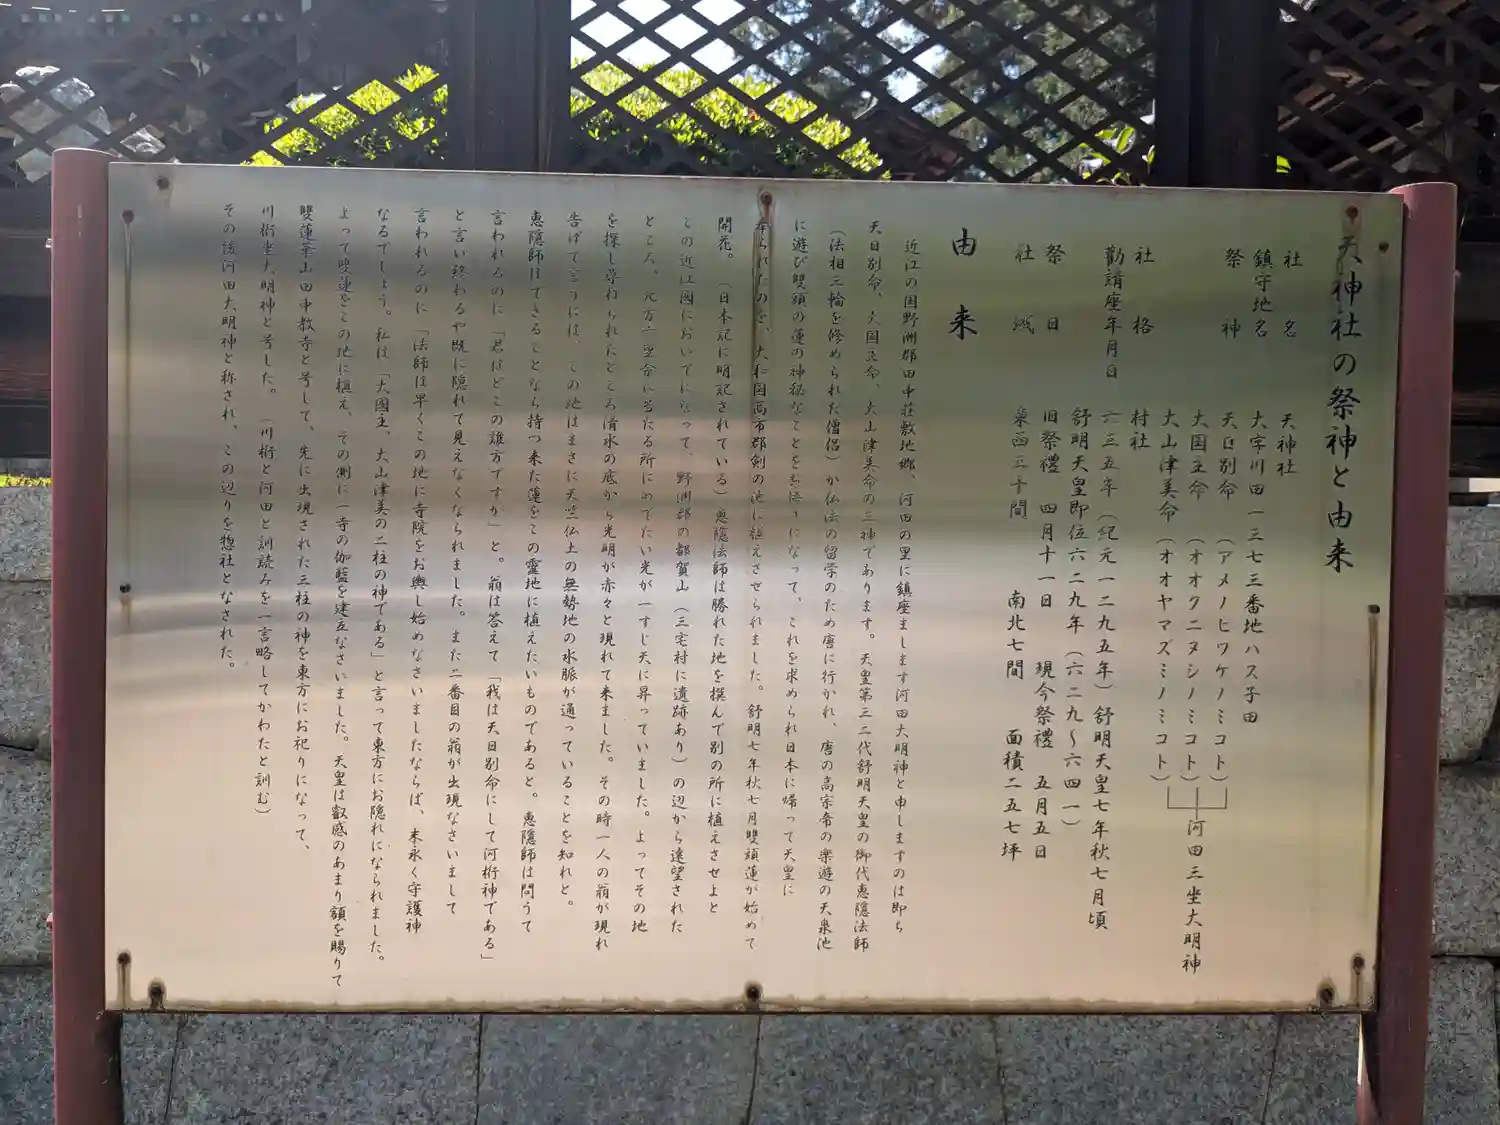 天神社の祭神と由来
社名 天神社
鎮守地名 大字川田一三七三番地ハス子田
祭神 天日別命（アメノヒワケノミコト）
大国主命（オオクニヌシノミコト） 河田三坐大明神
大山津美命（オオヤマズミノミコト）
社格 村社
勸請座年月日 六三五年（紀元一二九五年）舒明天皇七年秋七月頃
舒明天皇即位六二九年（六二九～六四一）
祭日 旧祭禮 四月十一日 現今祭禮 五月五日
社域 東西三十間 南北七間 面積二五七坪
由来
近江の国野洲郡田中荘敷地郷、河田の里に鎮座まします河田大明神と申しますのは即ち
天日別命、大国主命、大山津美命の三神であります。天皇第三二代舒明天皇の御代恵隠法師
（法相三輪を修められた僧侶）が仏法の留学のため唐に行かれ、唐の高宗帝の楽遊の天泉池
に遊び雙頭の蓮の神秘なことをお悟りになって、これを求められ日本に帰って天皇に
奉られたのを、大和国高市郡剣の池に植えさせられました。舒明七年秋七月雙頭蓮が始めて
開花。（日本記に明記されている）恵隠法師は勝れた地を撰んで別の所に植えさせよと
この近江國においでになって、野洲郡の都賀山（三宅村に遺跡あり）の辺から遠望された
ところ、北方二里余に当たる所にめでたい光が一すじ天に昇っていました。よってその地
を探し尋ねられたところ清水の底から光明が赤々と現れて来ました。その時一人の翁が現れ
告げて言うには、この地はまさに天竺仏土の無勢地の水脈が通っていることを知れと。
恵隠師はできることなら持つ来た蓮をこの霊地に植えたいものであると。恵隠師は問うて
言われるのに「君はどこの誰方ですか」と。翁は答えて「我は天日別命にして河桁神である」
と言い終わるや既に隠れて見えなくなられました。また二番目の翁が出現なさいまして
言われるのに「法師は早くこの地に寺院をお興し始めなさいましたならば、末永く守護神
なるでしょう。私は「大國主、大山津美の二柱の神である」と言って東方にお隠れになられました。
よって雙蓮をこの地に植え、その側に一寺の伽藍を建立なさいました。天皇は叡感のあまり額を賜りて
雙蓮華山田中教寺と号して、先に出現された三柱の神を東方にお祀りになって、
川桁坐大明神と号した。（川桁と河田と訓読みを一言略してかわたと訓む）
その後河田大明神と称され、この辺りを惣社となされた。